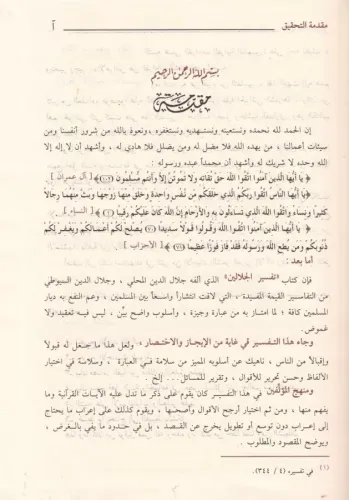 مقدمة التحقيق أ
بسم الله الرحمن الرحيم
مقدمة
إن الحمد لله نحمده، ونستعينه ونستهديه ونستغفره، ونعوذ بالله من شرور أنفسنا ومن
سيئات أعمالنا ، من يهده الله فلا مضل له ومن يضلل فلا هادي له ، وأشهد أن لا إله إلا
الله وحده لا شريك له وأشهد أن محمداً عبده ورسوله :
﴿يا أيها الذين آمنوا اتقوا الله حق تقاته ولا تموتن إلا وأنتم مسلمون (١٠٢)﴾ [ آل عمران ]
﴿يا أيها الناس اتقوا ربكم الذي خلقكم من نفس واحدة وخلق منها زوجها وبث منهما رجالاً
كثيراً ونساء واتقوا الله الذي تساءلون به والأرحام إن الله كان عليكم رقيباً (١)﴾ [ النساء ] .
﴿يا أيها الذين آمنوا اتقوا الله وقولوا قولاً سديدا (٧٠) يصلح لكم أعمالكم ويغفر لكم
ذنوبكم ومن يطع الله ورسوله فقد فاز فوزا عظيما (٧١)﴾ [ الأحزاب ] .
أما بعد :
فإن كتاب «تفسير الجلالين» الذي ألفه جلال الدين المحلي ، وجلال الدين السيوطي
من التفاسير القيمة المفيدة ، التي لاقت انتشاراً واسعاً بين المسلمين ، وعم النفع به ديار
المسلمين كافة ؛ لما امتاز به من عبارة وجيزة ، وأسلوب واضح بيّن ، ليس فيه تعقيد ولا
غموض .
وجاء هذا التفسير في غاية من الإيجاز والاختصار ، ولعل هذا ما جعل له قبولا
وإقبالاً من الناس ، ناهيك عن أسلوبه المميز من سلامة في العبارة ، وسلاسة في اختيار
الألفاظ وحسن تحرير للأقوال ، وتقرير للمسائل... إلخ .
ومنهج المؤلفين في هذا التفسير كان يقوم على ذكر ما تدل عليه الآيات القرآنية وما
يفهم منها ، ومن ثم اختيار أرجح الأقوال وأصحها ، ويقوم كذلك على إعراب ما يحتاج
إلى إعراب دون توسع أو تطويل يخرج عن القصد ، بل في حدود ما يفي بالغرض ،
ويوضح المقصود والمطلوب .
(١) في تفسيره (٤ / ٣٤٤).